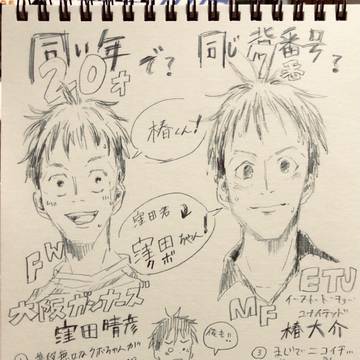 同い年で? 同じ背番号?
20才
椿くん!
窪田君
窪田
クボちゃん!
FW
大阪ガンナーズ
窪田晴彦
ETU
イースト・トーキョー
ユナイテッド
MF
椿大介
俺も!!